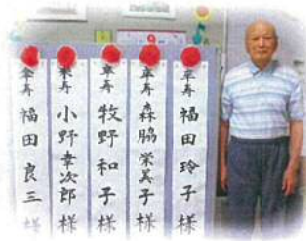 卒寿 福田玲子様
卒寿 森脇栄美子様
卒寿 牧野和子様
米寿 小野幸次郎様
傘寿 福田良三様